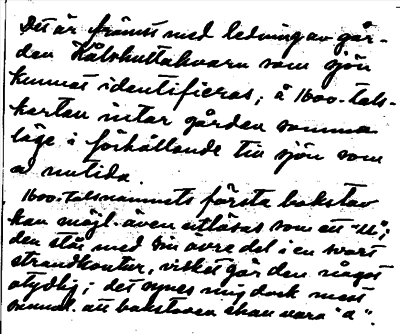 Det är främst med ledning av går-
den Kålshultakvarn som sjön
kunnat identifieras; å 1600-tals-
kartan intar gården samma
läge i förhållande till sjön som
a nutida.
1600-talsnamnets första bokstav
kan möjl. även utläsas som ett "U";
den står med sin övre del i en svart
strandkontur, vilket gör den något
otydlig; det synes mig dock mest
sannol. att bokstaven skall vara "a".